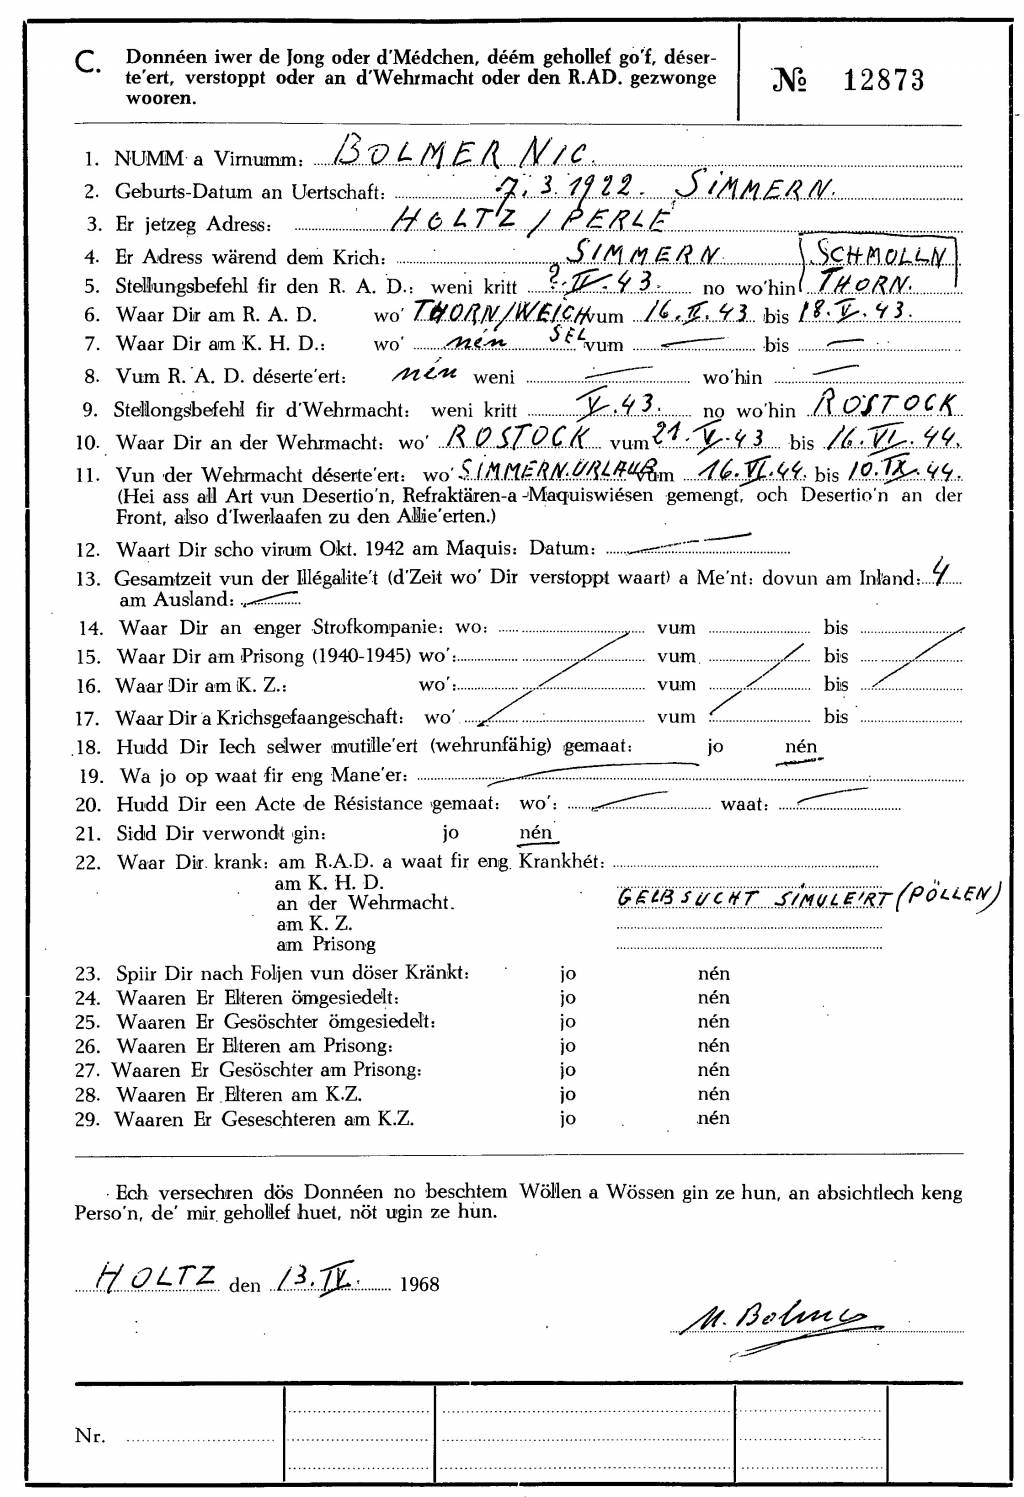 C. Donnéen iwer de Jong oder d'Médchen, déém gehollef go'f, déser-
te'ert, verstoppt oder an d'Wehrmacht oder den R.AD. gezwonge
wooren.
№ 12873
1. NUMM a Virnumm: BOLMER NIC.
2. Geburts-Datum an Uertschaft: 7.3.1922. SIMMERN.
3. Er jetzeg Adress: HOLTZ / PERLÉ
4. Er Adress wärend dem Krich: SIMMERN SCHMOLLN
5. Stellungsbefehl fir den R. A. D.: weni kritt ?.IV.43. no wo'hin THORN.
6. Waar Dir am R. A. D. wo' THORN/WEICH vum 16.II.43 bis 18.V.43.
SEL
7. Waar Dir am K. H. D.: wo' nén vum — bis —
8. Vum R. A. D. déserte'ert: nén weni — wo'hin —
9. Stellongsbefehl fir d'Wehrmacht: weni kritt V.43. no wo'hin ROSTOCK
10. Waar Dir an der Wehrmacht: wo' ROSTOCK vum 21.V.43 bis 16.VI.44.
11. Vun der Wehrmacht déserte'ert: wo' SIMMERN.URLAUB vum 16.VI.44. bis 10.IX.44.
(Hei ass all Art vun Desertio'n, Refraktären-a-Maquiswiésen gemengt, och Desertio'n an der
Front, also d'Iwerlaafen zu den Allie'erten.)
12. Waart Dir scho virum Okt. 1942 am Maquis: Datum: —
13. Gesamtzeit vun der Illégalite't (d'Zeit wo' Dir verstoppt waart) a Me'nt: dovun am Inland: 4
am Ausland: —
14. Waar Dir an enger Strofkompanie: wo: vum bis
15. Waar Dir am Prisong (1940-1945) wo': vum bis
16. Waar Dir am K. Z.: wo': vum bis
17. Waar Dir a Krichsgefaangeschaft: wo' vum bis
18. Hudd Dir Iech selwer mutille'ert (wehrunfähig) gemaat: jo nén
19. Wa jo op waat fir eng Mane'er: —
20. Hudd Dir een Acte de Résistance gemaat: wo': — waat: —
21. Sidd Dir verwondt gin: jo nén
22. Waar Dir krank: am R.A.D. a waat fir eng Krankhét:
am K. H. D.
an der Wehrmacht. GELBSUCHT SIMULE'IRT (PÖLLEN)
am K. Z.
am Prisong
23. Spiir Dir nach Foljen vun döser Kränkt: jo nén
24. Waaren Er Elteren ömgesiedelt: jo nén
25. Waaren Er Gesöschter ömgesiedelt: jo nén
26. Waaren Er Elteren am Prisong: jo nén
27. Waaren Er Gesöschter am Prisong: jo nén
28. Waaren Er Elteren am K.Z. jo nén
29. Waaren Er Geseschteren am K.Z. jo nén
Ech versechren dös Donnéen no beschtem Wöllen a Wössen gin ze hun, an absichtlech keng
Perso'n, de' mir gehollef huet, nöt ugin ze hun.
HOLTZ den 13.IV. 1968
N. Bolmer
Nr.